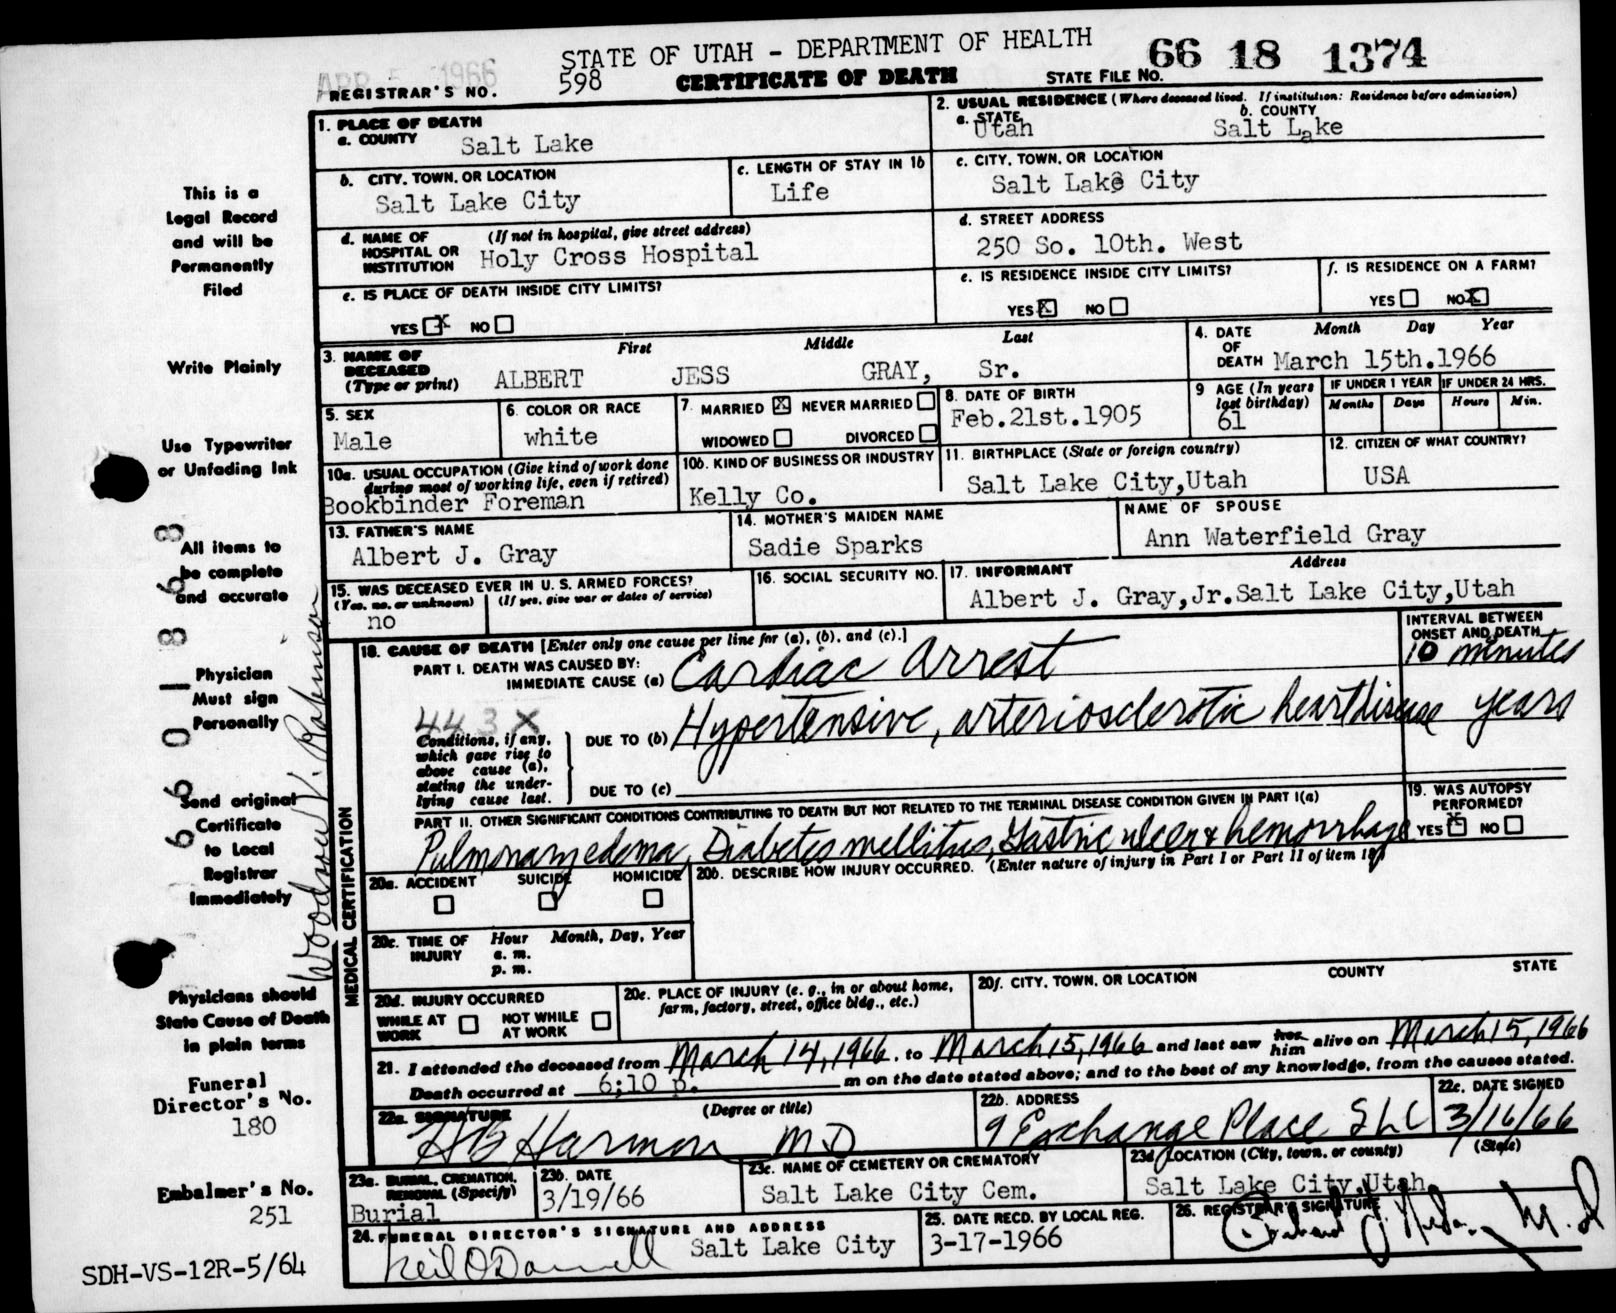 STATE OF UTAH - DEPARTMENT OF HEALTH
66 18 1374
APR 5 1966
REGISTRAR'S NO. 598
CERTIFICATE OF DEATH
STATE FILE NO.
1. PLACE OF DEATH
a. COUNTY Salt Lake
2. USUAL RESIDENCE (Where deceased lived. If institution: Residence before admission)
a. STATE Utah
b. COUNTY Salt Lake
b. CITY, TOWN, OR LOCATION
Salt Lake City
c. LENGTH OF STAY IN 1b
Life
c. CITY, TOWN, OR LOCATION
Salt Lake City
d. NAME OF HOSPITAL OR INSTITUTION (If not in hospital, give street address)
Holy Cross Hospital
d. STREET ADDRESS
250 So. 10th. West
e. IS PLACE OF DEATH INSIDE CITY LIMITS?
YES X NO
e. IS RESIDENCE INSIDE CITY LIMITS?
YES X NO
f. IS RESIDENCE ON A FARM?
YES NO X
3. NAME OF DECEASED (Type or print)
First Middle Last
ALBERT JESS GRAY, Sr.
4. DATE OF DEATH Month Day Year
March 15th.1966
5. SEX
Male
6. COLOR OR RACE
white
7. MARRIED X NEVER MARRIED
WIDOWED DIVORCED
8. DATE OF BIRTH
Feb.21st.1905
9 AGE (In years last birthday)
61
IF UNDER 1 YEAR
Months Days
IF UNDER 24 HRS.
Hours Min.
10a. USUAL OCCUPATION (Give kind of work done during most of working life, even if retired)
Bookbinder Foreman
10b. KIND OF BUSINESS OR INDUSTRY
Kelly Co.
11. BIRTHPLACE (State or foreign country)
Salt Lake City,Utah
12. CITIZEN OF WHAT COUNTRY?
USA
13. FATHER'S NAME
Albert J. Gray
14. MOTHER'S MAIDEN NAME
Sadie Sparks
NAME OF SPOUSE
Ann Waterfield Gray
15. WAS DECEASED EVER IN U. S. ARMED FORCES?
(Yes, no, or unknown) (If yes, give war or dates of service)
no
16. SOCIAL SECURITY NO.
17. INFORMANT Address
Albert J. Gray,Jr.Salt Lake City,Utah
MEDICAL CERTIFICATION
18. CAUSE OF DEATH [Enter only one cause per line for (a), (b), and (c).]
INTERVAL BETWEEN ONSET AND DEATH
PART I. DEATH WAS CAUSED BY:
IMMEDIATE CAUSE (a) Cardiac Arrest 10 minutes
443X
Conditions, if any, which gave rise to above cause (a), stating the underlying cause last.
DUE TO (b) Hypertensive, arteriosclerotic heart disease years
DUE TO (c)
PART II. OTHER SIGNIFICANT CONDITIONS CONTRIBUTING TO DEATH BUT NOT RELATED TO THE TERMINAL DISEASE CONDITION GIVEN IN PART I(a)
Pulmonary edema, Diabetes mellitus, Gastric ulcer & hemorrhage
19. WAS AUTOPSY PERFORMED?
YES X NO
20a. ACCIDENT SUICIDE HOMICIDE
20b. DESCRIBE HOW INJURY OCCURRED. (Enter nature of injury in Part I or Part II of item 18)
20c. TIME OF INJURY Hour Month, Day, Year
a. m.
p. m.
20d. INJURY OCCURRED
WHILE AT WORK NOT WHILE AT WORK
20e. PLACE OF INJURY (e. g., in or about home, farm, factory, street, office bldg., etc.)
20f. CITY, TOWN, OR LOCATION COUNTY STATE
21. I attended the deceased from March 14, 1966, to March 15, 1966 and last saw her him alive on March 15, 1966
Death occurred at 6;10 p. m on the date stated above; and to the best of my knowledge, from the causes stated.
22a. SIGNATURE (Degree or title)
HB Harmon MD
22b. ADDRESS
9 Exchange Place SLC
22c. DATE SIGNED
3/16/66
23a. BURIAL, CREMATION, REMOVAL (Specify)
Burial
23b. DATE
3/19/66
23c. NAME OF CEMETERY OR CREMATORY
Salt Lake City Cem.
23d. LOCATION (City, town, or county) (State)
Salt Lake City,Utah
24. FUNERAL DIRECTOR'S SIGNATURE AND ADDRESS
Neil O'Donnell Salt Lake City
25. DATE RECD. BY LOCAL REG.
3-17-1966
26. REGISTRAR'S SIGNATURE
M.D.
This is a
Legal Record
and will be
Permanently
Filed
Write Plainly
Use Typewriter
or Unfading Ink
All items to
be complete
and accurate
Physician
Must sign
Personally
Send original
Certificate
to Local
Registrar
Immediately
Physicians should
State Cause of Death
in plain terms
Funeral
Director's No.
180
Embalmer's No.
251
SDH-VS-12R-5/64
6601868
Woodrow V. Robinson